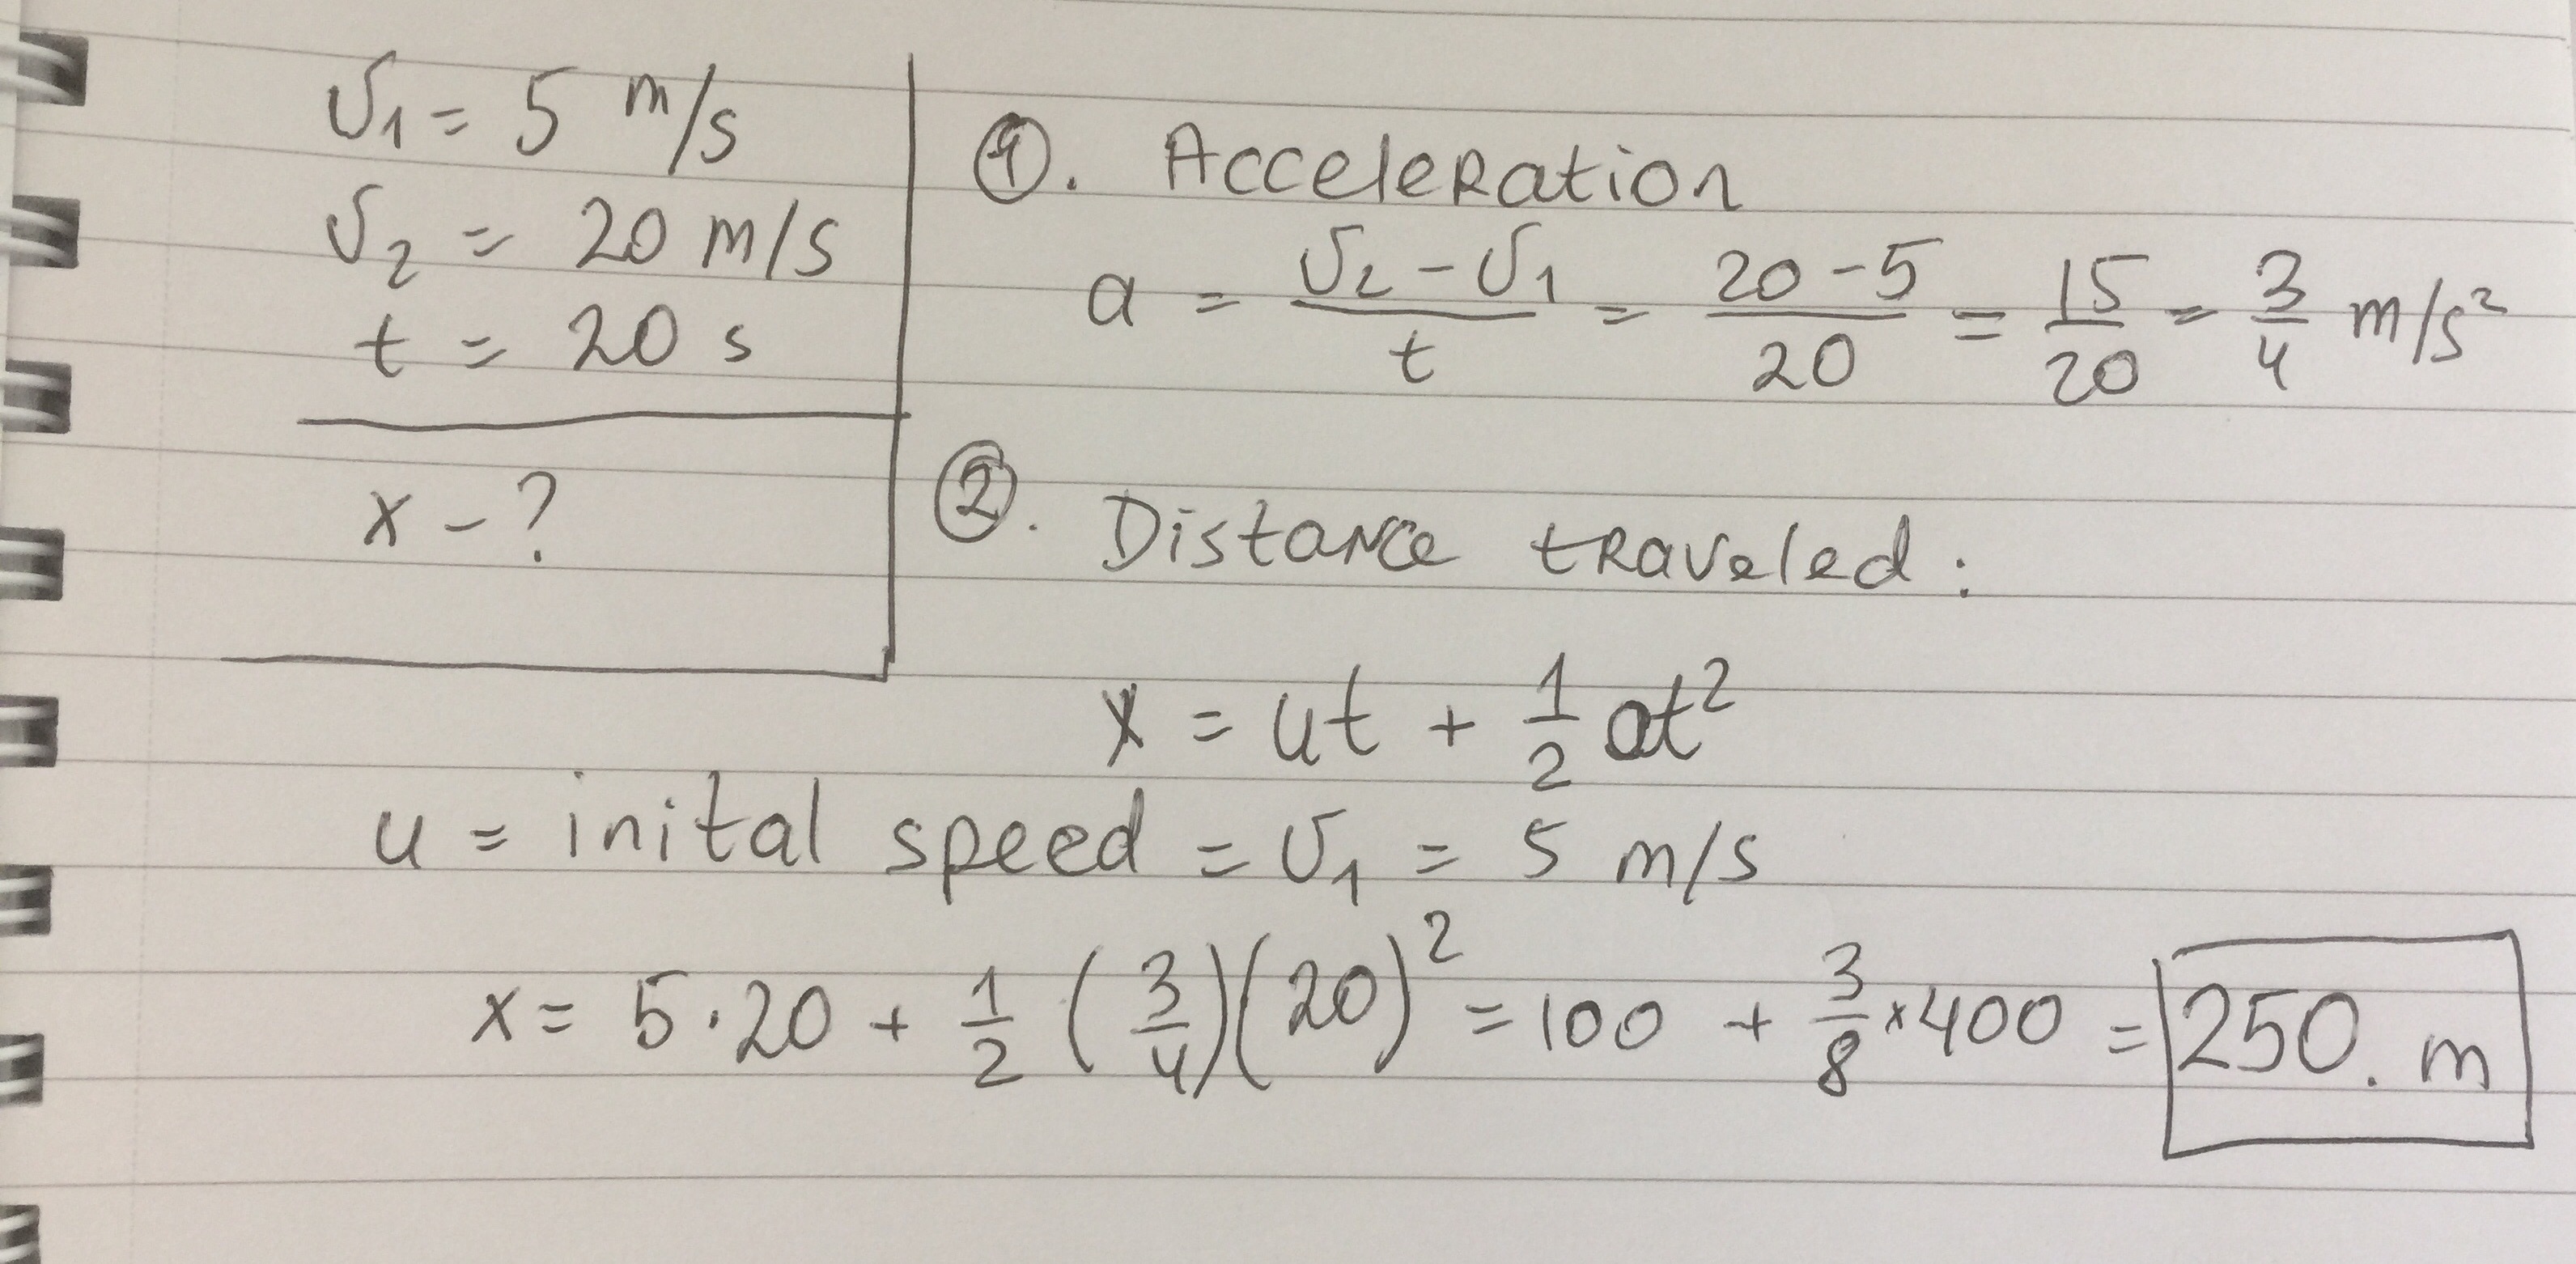 v₁ = 5 m/s
v₂ = 20 m/s
t = 20 s
x - ?
①. Acceleration
a = (v₂ - v₁)/t = (20 - 5)/20 = 15/20 = 3/4 m/s²
②. Distance traveled :
x = ut + 1/2 at²
u = inital speed = v₁ = 5 m/s
x = 5 · 20 + 1/2 (3/4)(20)² = 100 + 3/8 × 400 = 250. m